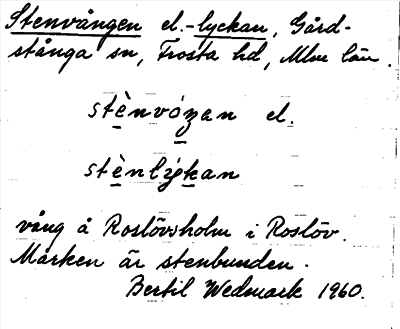 Stenvången el. -lyckan, Gård-
stånga sn, Frosta hd, Mlm län.
stènvóŋan el.
stènlýkan
vång å Roslövsholm i Roslöv.
Marken är stenbunden.
Bertil Wedmark 1960.